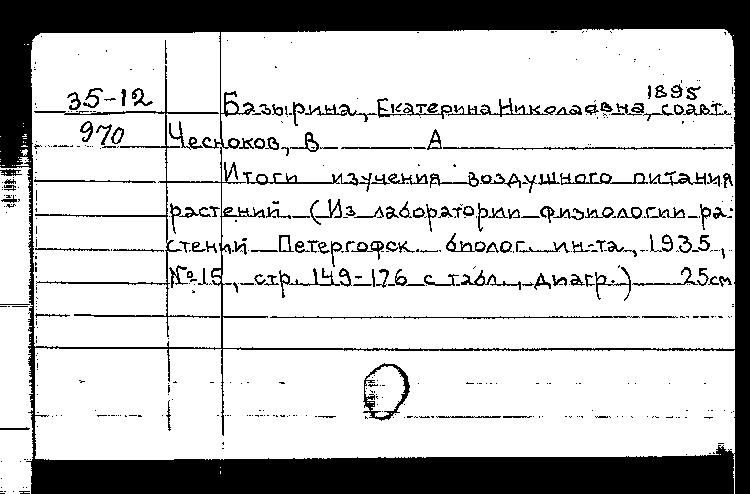 1895
35-12 Базырина, Екатерина Николаевна, соавт.
970 Чесноков, В А
Итоги изучения воздушного питания
растений. (Из лаборатории физиологии ра-
стений Петергофск. биолог. ин-та, 1935,
№15, стр. 149-176 с табл., диагр.) 25см